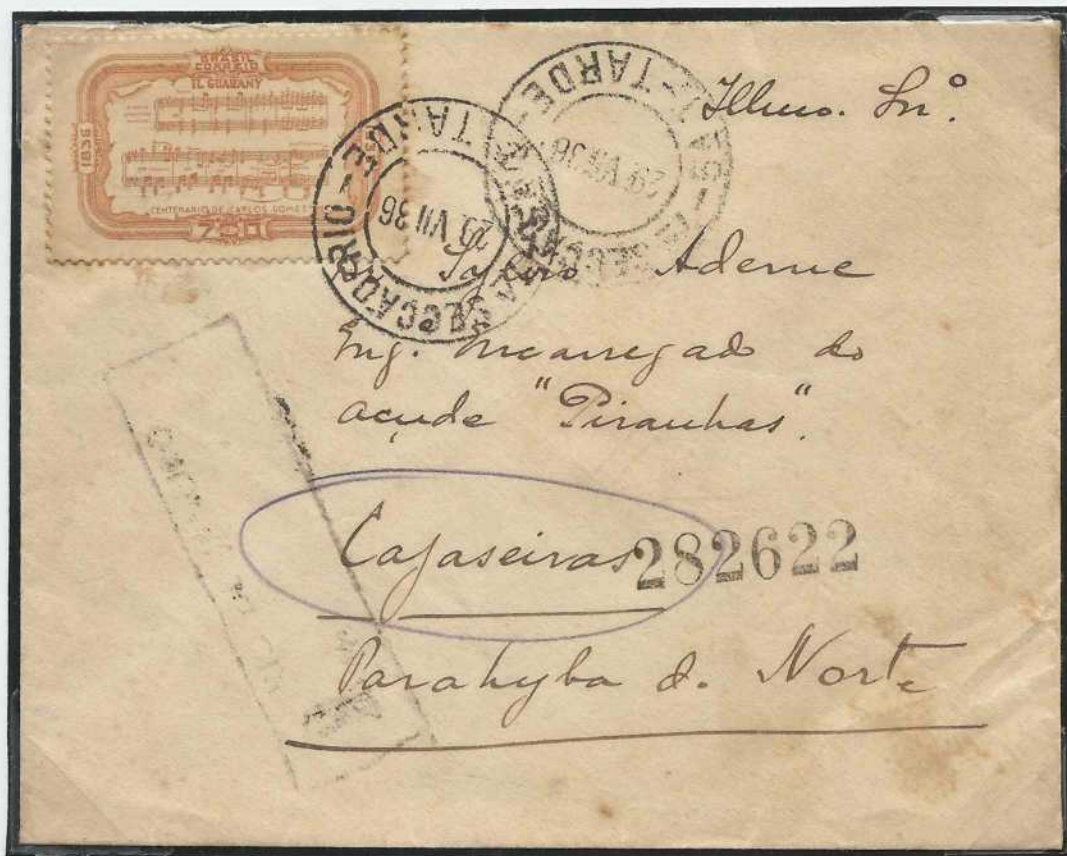 BRASIL
CORREIO
IL GUARANY
1836
CENTENARIO DE CARLOS GOMES
700
TARDE
SECCA
RIO
VII 36
TARDE
29 VII 36
Illmo. Snr.º
Aderne
Eng. encarregado do
açude "Piranhas".
Cajaseiras
282622
Parahyba d. Norte